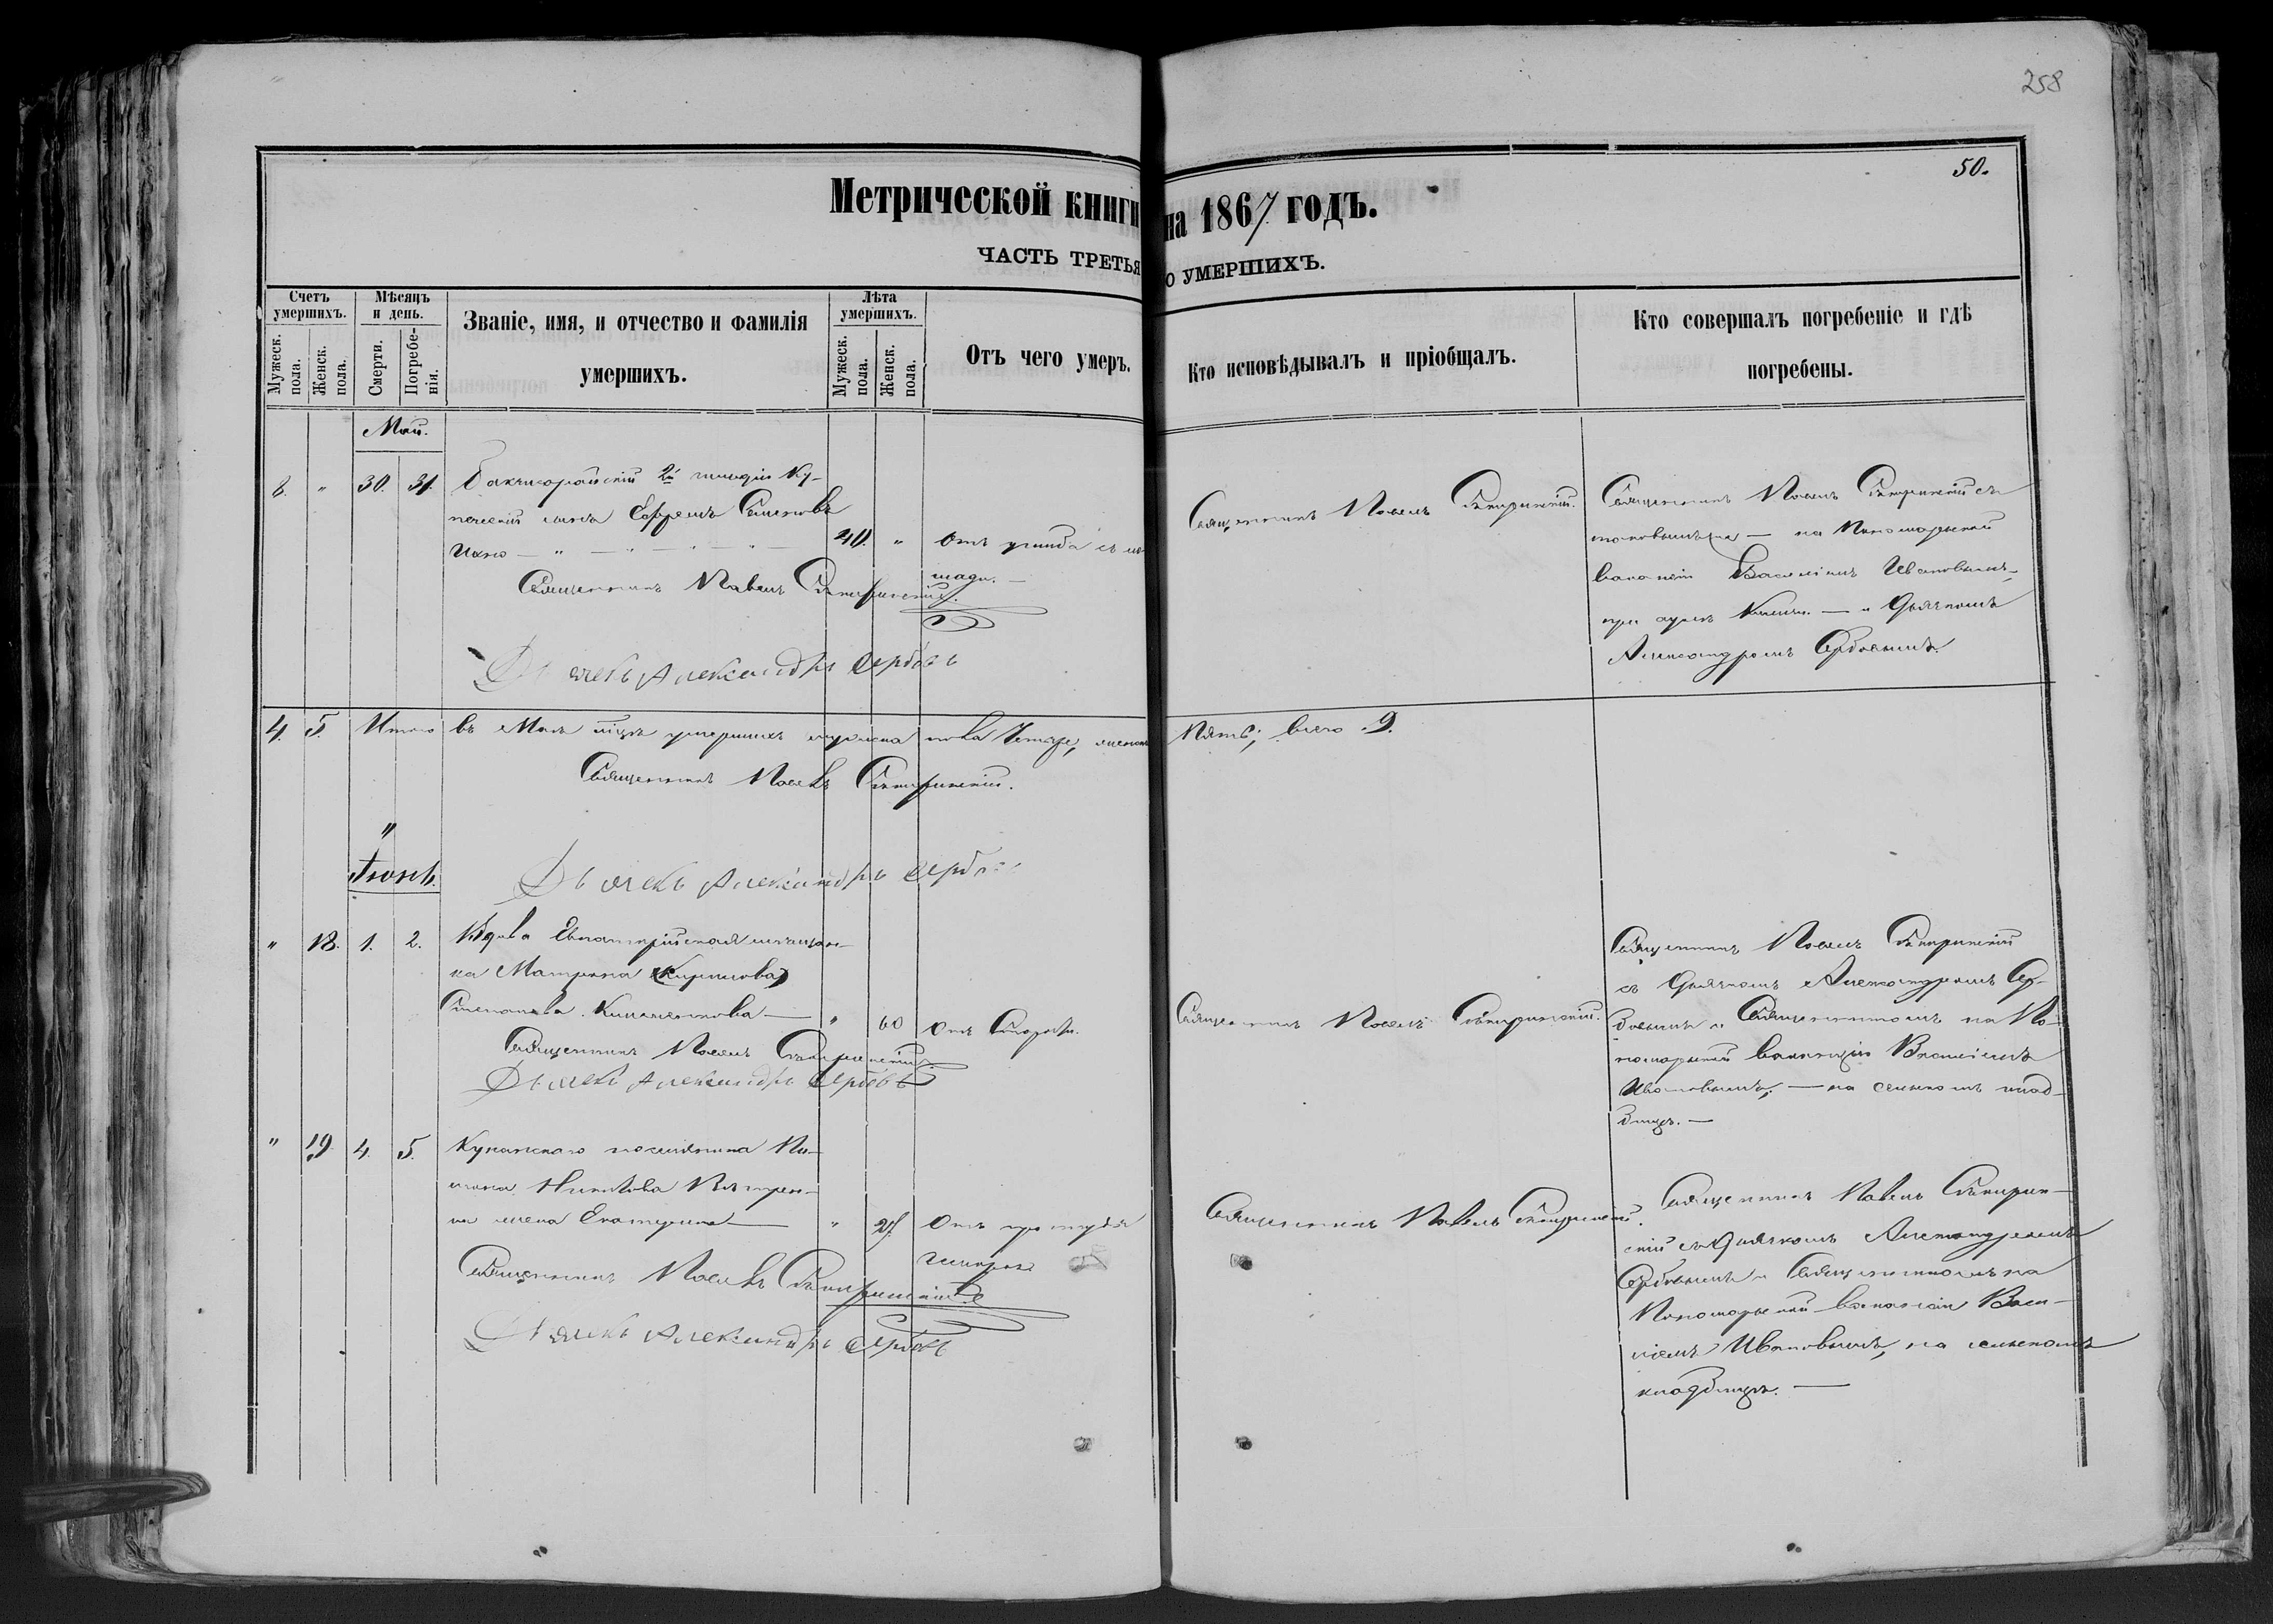 258
50.
Метрической книги на 1867 годъ.
ЧАСТЬ ТРЕТЬЯ О УМЕРШИХЪ.
Счетъ умершихъ.
Мужеск. пола.
Женск. пола.
Мѣсяцъ и день.
Смерти.
Погребенія.
Званіе, имя, и отчество и фамилія умершихъ.
Лѣта умершихъ.
Мужеск. пола.
Женск. пола.
Отъ чего умеръ.
Кто исповѣдывалъ и пріобщалъ.
Кто совершалъ погребеніе и гдѣ погребены.
Май.
8. " 30. 31.
2й гильдіи Ку-
печескій сынъ Ефремъ Семеновъ
40. " Отъ ушиба съ ло-
шади.
Священникъ Павелъ
Дьячекъ Александръ Сербовъ
Священникъ Павелъ
Священникъ Павелъ съ
на Пономарской
ваканціи Василіемъ Ивановымъ,
при и Дьячкомъ
Александромъ Сербовымъ.
4. 5. Итого въ Маѣ умершихъ мужеска пола Четыре, женска Пять, всего 9.
Священникъ Павелъ
Дьячекъ Александръ Сербовъ
Іюнь.
" 18. 1. 2.
Вдова Евпаторійская мѣщан-
ка Матрона (Кирилова)
Степанова
" 60 Отъ Старости.
Священникъ Павелъ
Дьячекъ Александръ Сербовъ
Священникъ Павелъ
Священникъ Павелъ
съ Дьячкомъ Александромъ Сер-
бовымъ и Священникомъ на По-
номарской ваканціи Василіемъ
Ивановымъ, на сельскомъ клад-
бищѣ.
" 19. 4. 5.
поселянина
на жена Екатерина
" Отъ простуды
Священникъ Павелъ
Дьячекъ Александръ Сербовъ
Священникъ Павелъ
Священникъ Павелъ
съ Дьячкомъ Александромъ
Сербовымъ и Священникомъ на
Пономарской ваканціи Васи-
ліемъ Ивановымъ, на сельскомъ
кладбищѣ.